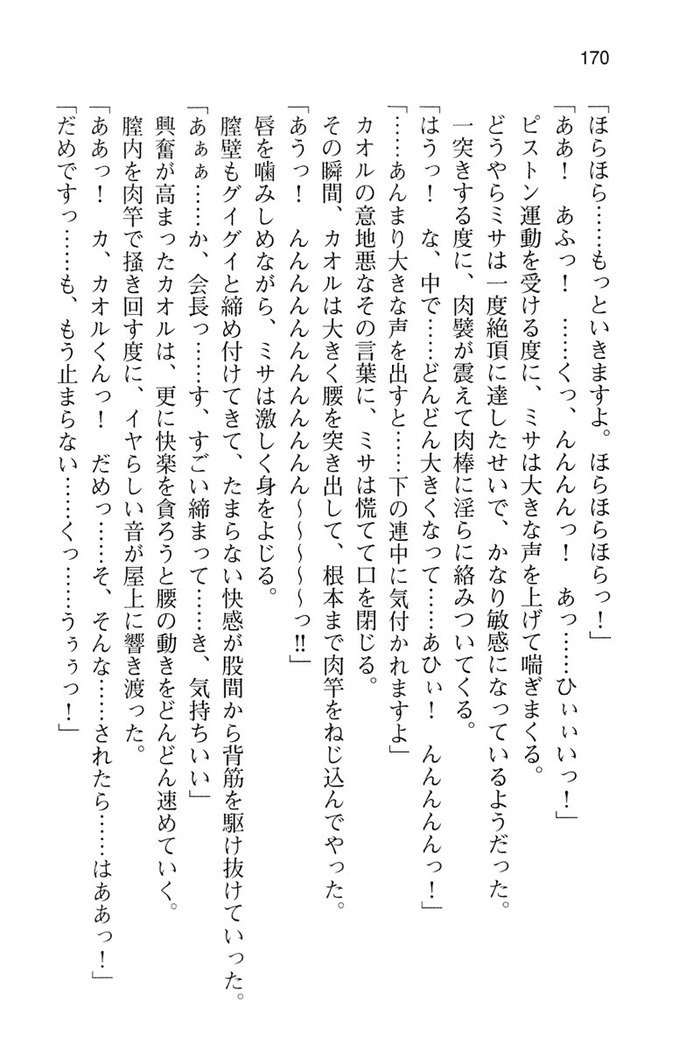 170
「ほらほら……もっといきますよ。ほらほらほらっ！」
「ああ！　あふっ！　……くっ、んんんんっ！　あっ……ひぃぃいっ！」
ピストン運動を受ける度に、ミサは大きな声を上げて喘ぎまくる。
どうやらミサは一度絶頂に達したせいで、かなり敏感になっているようだった。
一突きする度に、肉襞が震えて肉棒に淫らに絡みついてくる。
「はうっ！　な、中で……どんどん大きくなって……あひぃ！　んんんんんっ！」
「……あんまり大きな声を出すと……下の連中に気付かれますよ」
カオルの意地悪なその言葉に、ミサは慌てて口を閉じる。
その瞬間、カオルは大きく腰を突き出して、根本まで肉竿をねじ込んでやった。
「あうっ！　んんんんんんんんんんん～～～～～っ!!」
唇を噛みしめながら、ミサは激しく身をよじる。
膣壁もグイグイと締め付けてきて、たまらない快感が股間から背筋を駆け抜けていった。
「あぁぁ……か、会長っ……す、すごい締まって……き、気持ちいい」
興奮が高まったカオルは、更に快楽を貪ろうと腰の動きをどんどん速めていく。
膣内を肉竿で掻き回す度に、イヤらしい音が屋上に響き渡った。
「ああっ！　カ、カオルくんっ！　だめっ……そ、そんな……されたら……はああっ！」
「だめですっ……も、もう止まらない……くっ……うぅぅっ！」